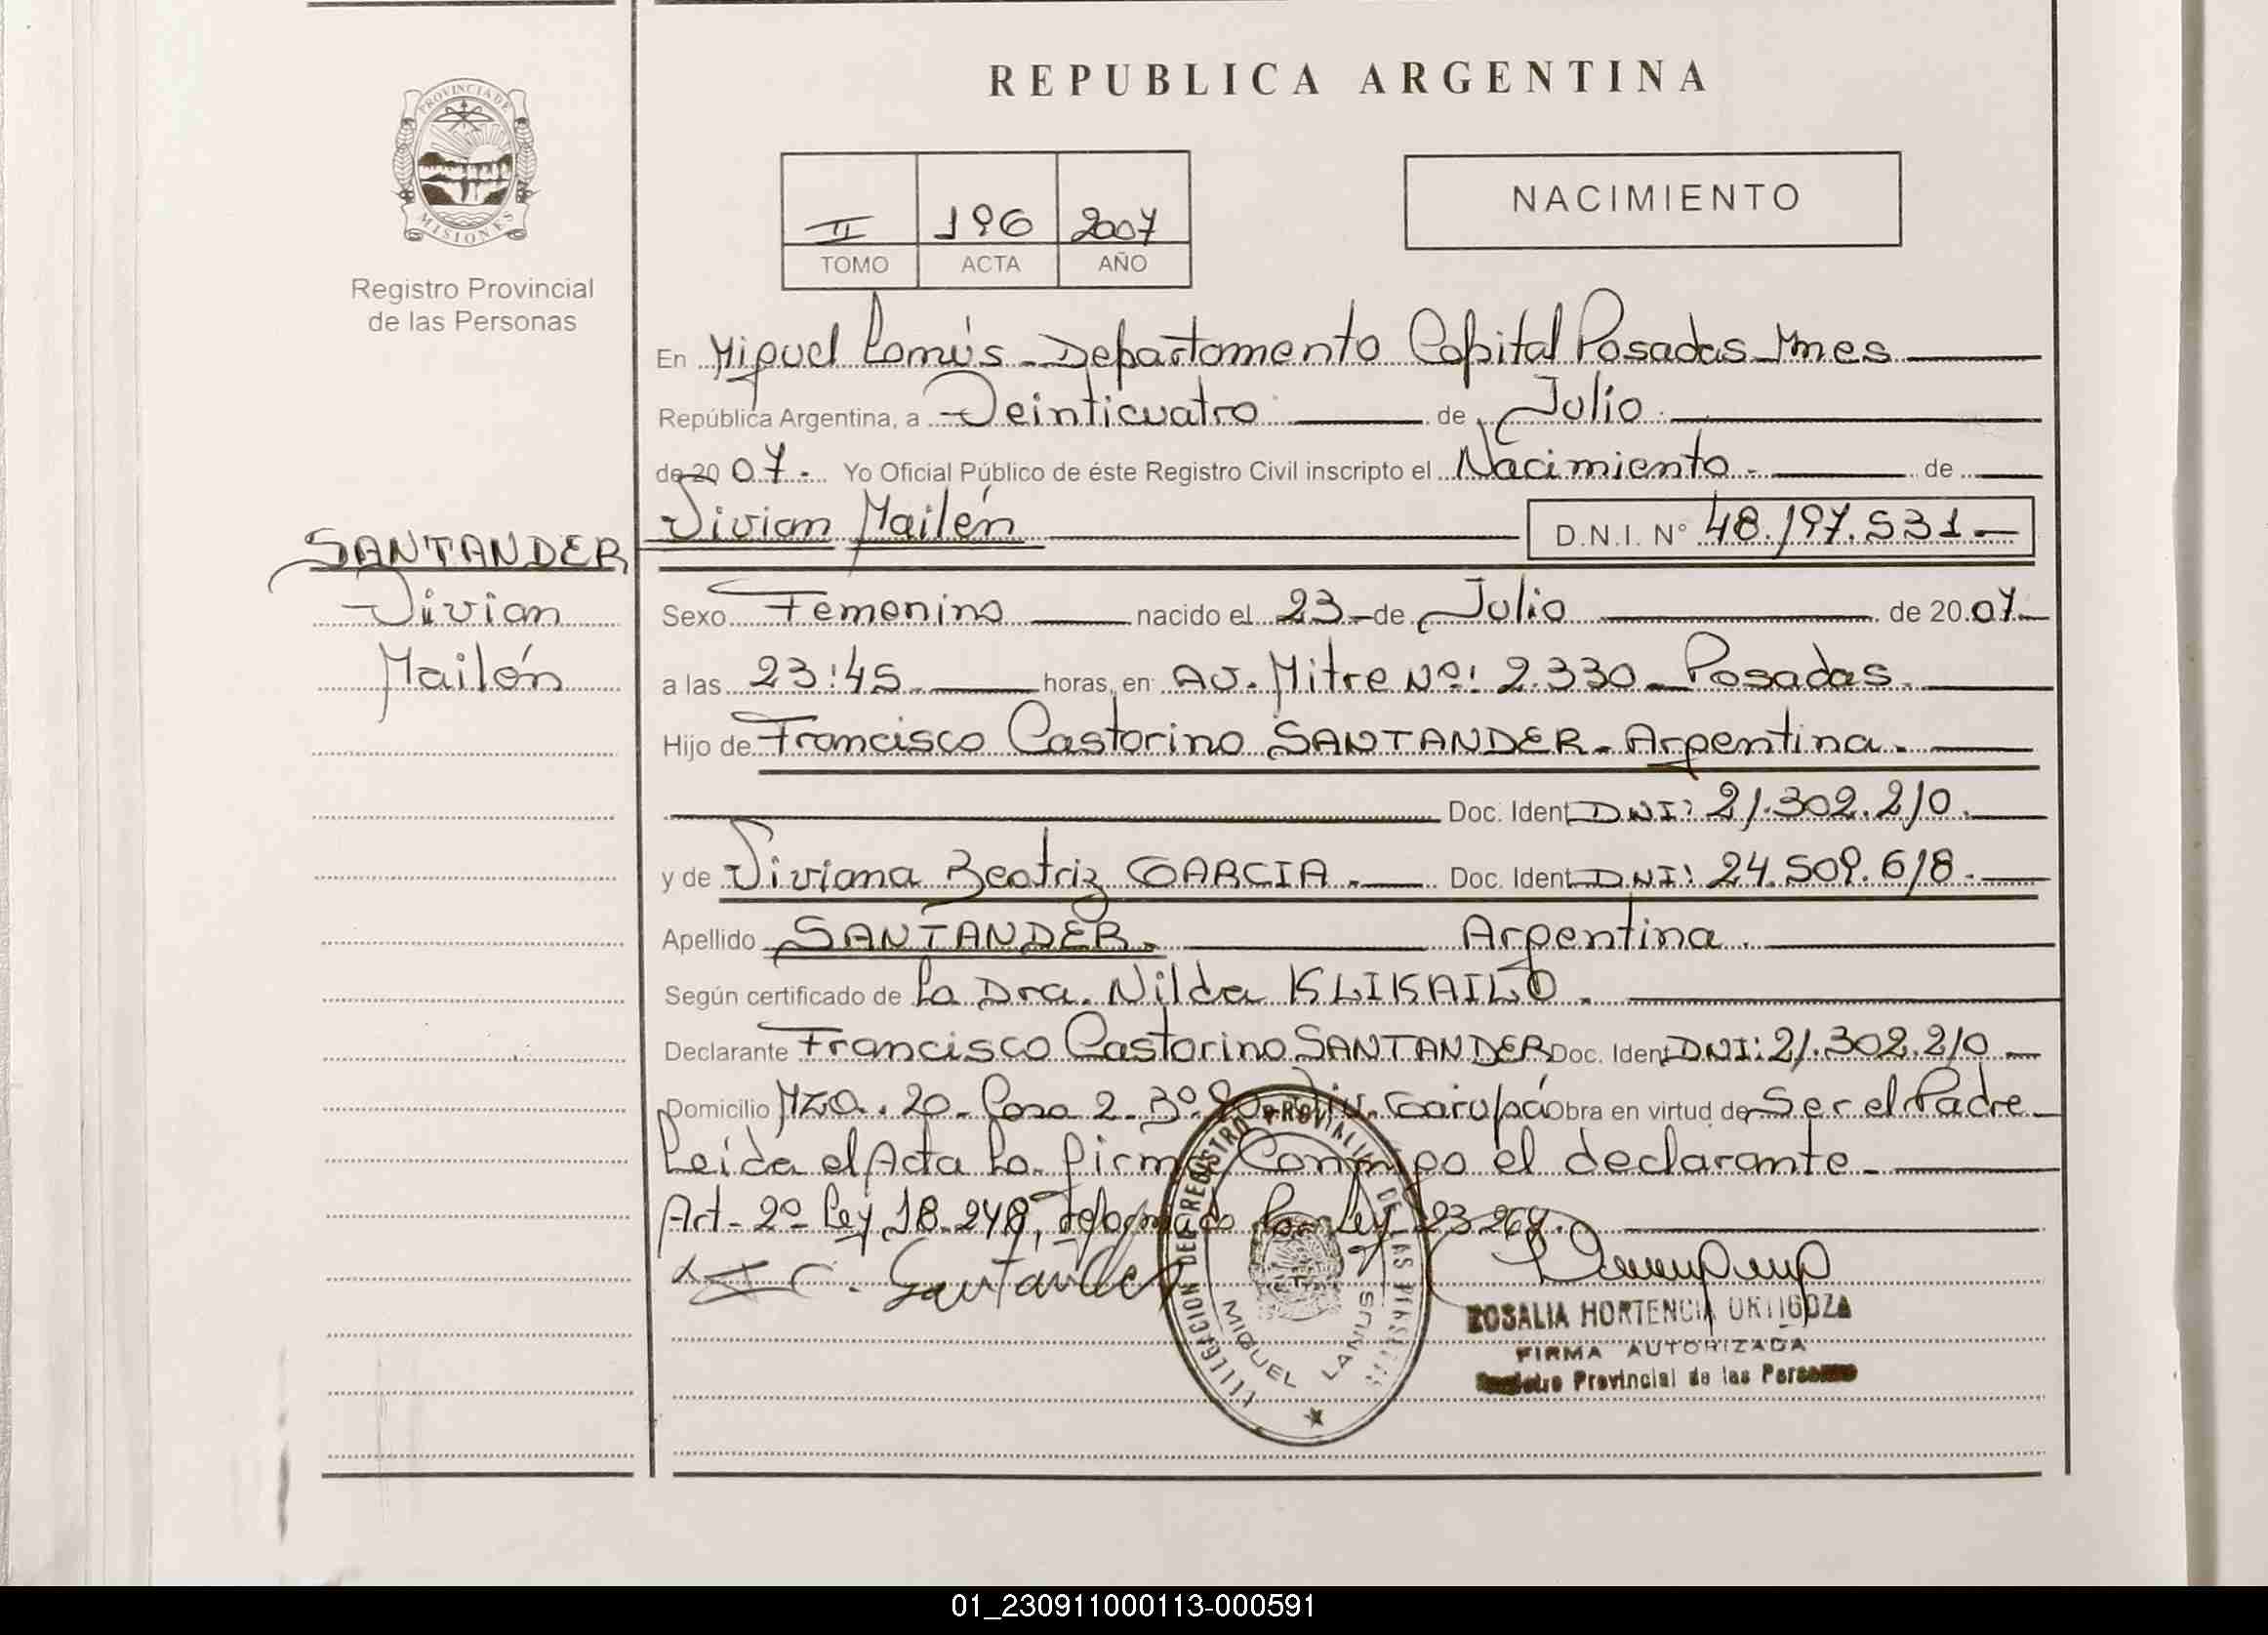 REPUBLICA ARGENTINA
PROVINCIA DE
MISIONES
Registro Provincial
de las Personas
II 196 2007
TOMO ACTA AÑO
NACIMIENTO
En Miguel Lanús - Departamento Capital Posadas Mnes
República Argentina, a Veinticuatro de Julio.
de 20 07. Yo Oficial Público de éste Registro Civil inscripto el Nacimiento. de
Vivian Mailén D.N.I. N° 48.197.531
SANTANDER
Vivian
Mailén
Sexo Femenino nacido el 23 de Julio de 20 07
a las 23:45 horas, en Av. Mitre Nº: 2.330 - Posadas.
Hijo de Francisco Castorino SANTANDER - Argentina.
Doc. Ident. DNI: 21.302.210.
y de Viviana Beatriz GARCIA. Doc. Ident. DNI: 24.509.618.
Apellido SANTANDER. Argentina.
Según certificado de La Dra. Nilda KLIKAILO.
Declarante Francisco Castorino SANTANDER Doc. Ident. DNI: 21.302.210
Domicilio Mza. 20 - Casa 2 - 3º Garupá Obra en virtud de Ser el Padre
Leída el Acta La firma Conmigo el declarante
Art - 2º Ley 18.248, reformado Por Ley 23.264.
C. Santander
DELEGACION DEL REGISTRO PROVINCIAL DE LAS PERSONAS
MIGUEL LANUS
ROSALIA HORTENCIA ORTIGOZA
FIRMA AUTORIZADA
Registro Provincial de las Personas
01_230911000113-000591